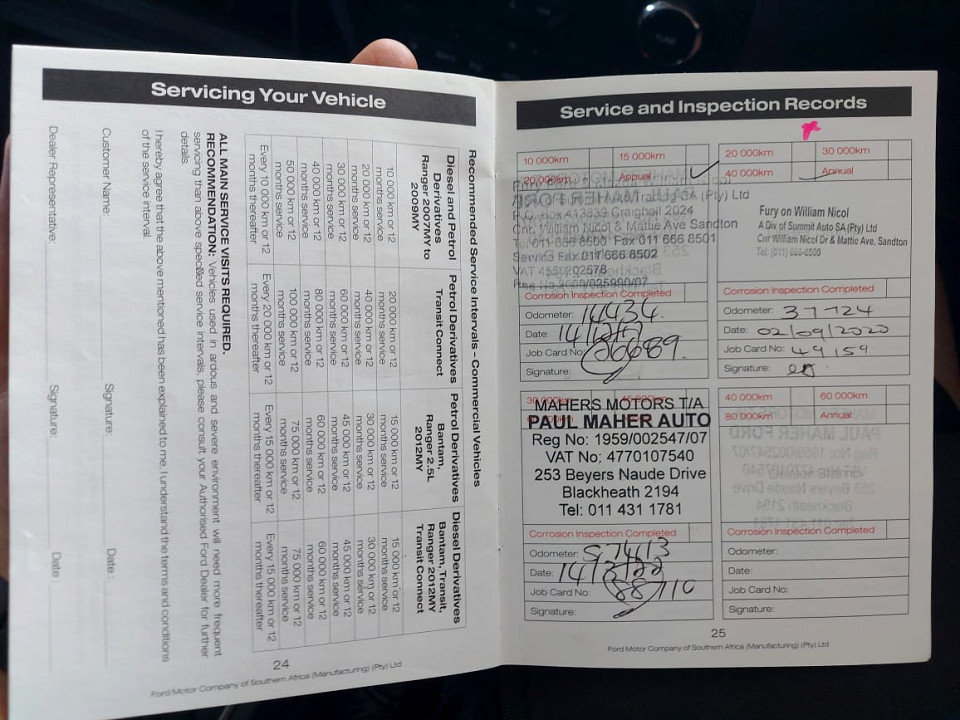 Servicing Your Vehicle
Recommended Service Intervals – Commercial Vehicles
Diesel and Petrol Derivatives Ranger 2007MY to 2009MY
Petrol Derivatives Transit Connect
Petrol Derivatives Bantam, Ranger 2.5L 2012MY
Diesel Derivatives Bantam, Transit, Ranger 2012MY Transit Connect
10 000 km or 12 months service
20 000 km or 12 months service
15 000 km or 12 months service
15 000 km or 12 months service
20 000 km or 12 months service
40 000 km or 12 months service
30 000 km or 12 months service
30 000 km or 12 months service
30 000 km or 12 months service
60 000 km or 12 months service
45 000 km or 12 months service
45 000 km or 12 months service
40 000 km or 12 months service
80 000 km or 12 months service
60 000 km or 12 months service
60 000 km or 12 months service
50 000 km or 12 months service
100 000 km or 12 months service
75 000 km or 12 months service
75 000 km or 12 months service
Every 10 000 km or 12 months thereafter
Every 20 000 km or 12 months thereafter
Every 15 000 km or 12 months thereafter
Every 15 000 km or 12 months thereafter
ALL MAIN SERVICE VISITS REQUIRED.
RECOMMENDATION: Vehicles used in ardous and severe environment will need more frequent
servicing than above specified service intervals, please consult your Authorised Ford Dealer for further
details.
I hereby agree that the above mentioned has been explained to me. I understand the terms and conditions
of the service interval.
Customer Name: Signature: Date :
Dealer Representative: Signature: Date :
24
Ford Motor Company of Southern Africa (Manufacturing) (Pty) Ltd
Service and Inspection Records
10 000km 15 000km
20 000km Annual
(Pty) Ltd
P.O. box 413839 Craighall 2024
Cnr. William Nicol & Mattie Ave Sandton
Tel 011 666 8500 Fax 011 666 8501
Service Fax 011 666 8502
VAT
Corrosion Inspection Completed
Odometer: 14434
Date:
Job Card No:
Signature:
20 000km 30 000km
40 000km Annual
Fury on William Nicol
A Div of Summit Auto SA (Pty) Ltd
Cnr William Nicol Dr & Mattie Ave, Sandton
Tel: (011) 666-8500
Corrosion Inspection Completed
Odometer: 37724
Date: 02/09/2020
Job Card No: 49159
Signature:
MAHERS MOTORS T/A
PAUL MAHER AUTO
Reg No: 1959/002547/07
VAT No: 4770107540
253 Beyers Naude Drive
Blackheath 2194
Tel: 011 431 1781
Corrosion Inspection Completed
Odometer:
Date:
Job Card No:
Signature:
40 000km 60 000km
80 000km Annual
Corrosion Inspection Completed
Odometer:
Date:
Job Card No:
Signature:
25
Ford Motor Company of Southern Africa (Manufacturing) (Pty) Ltd